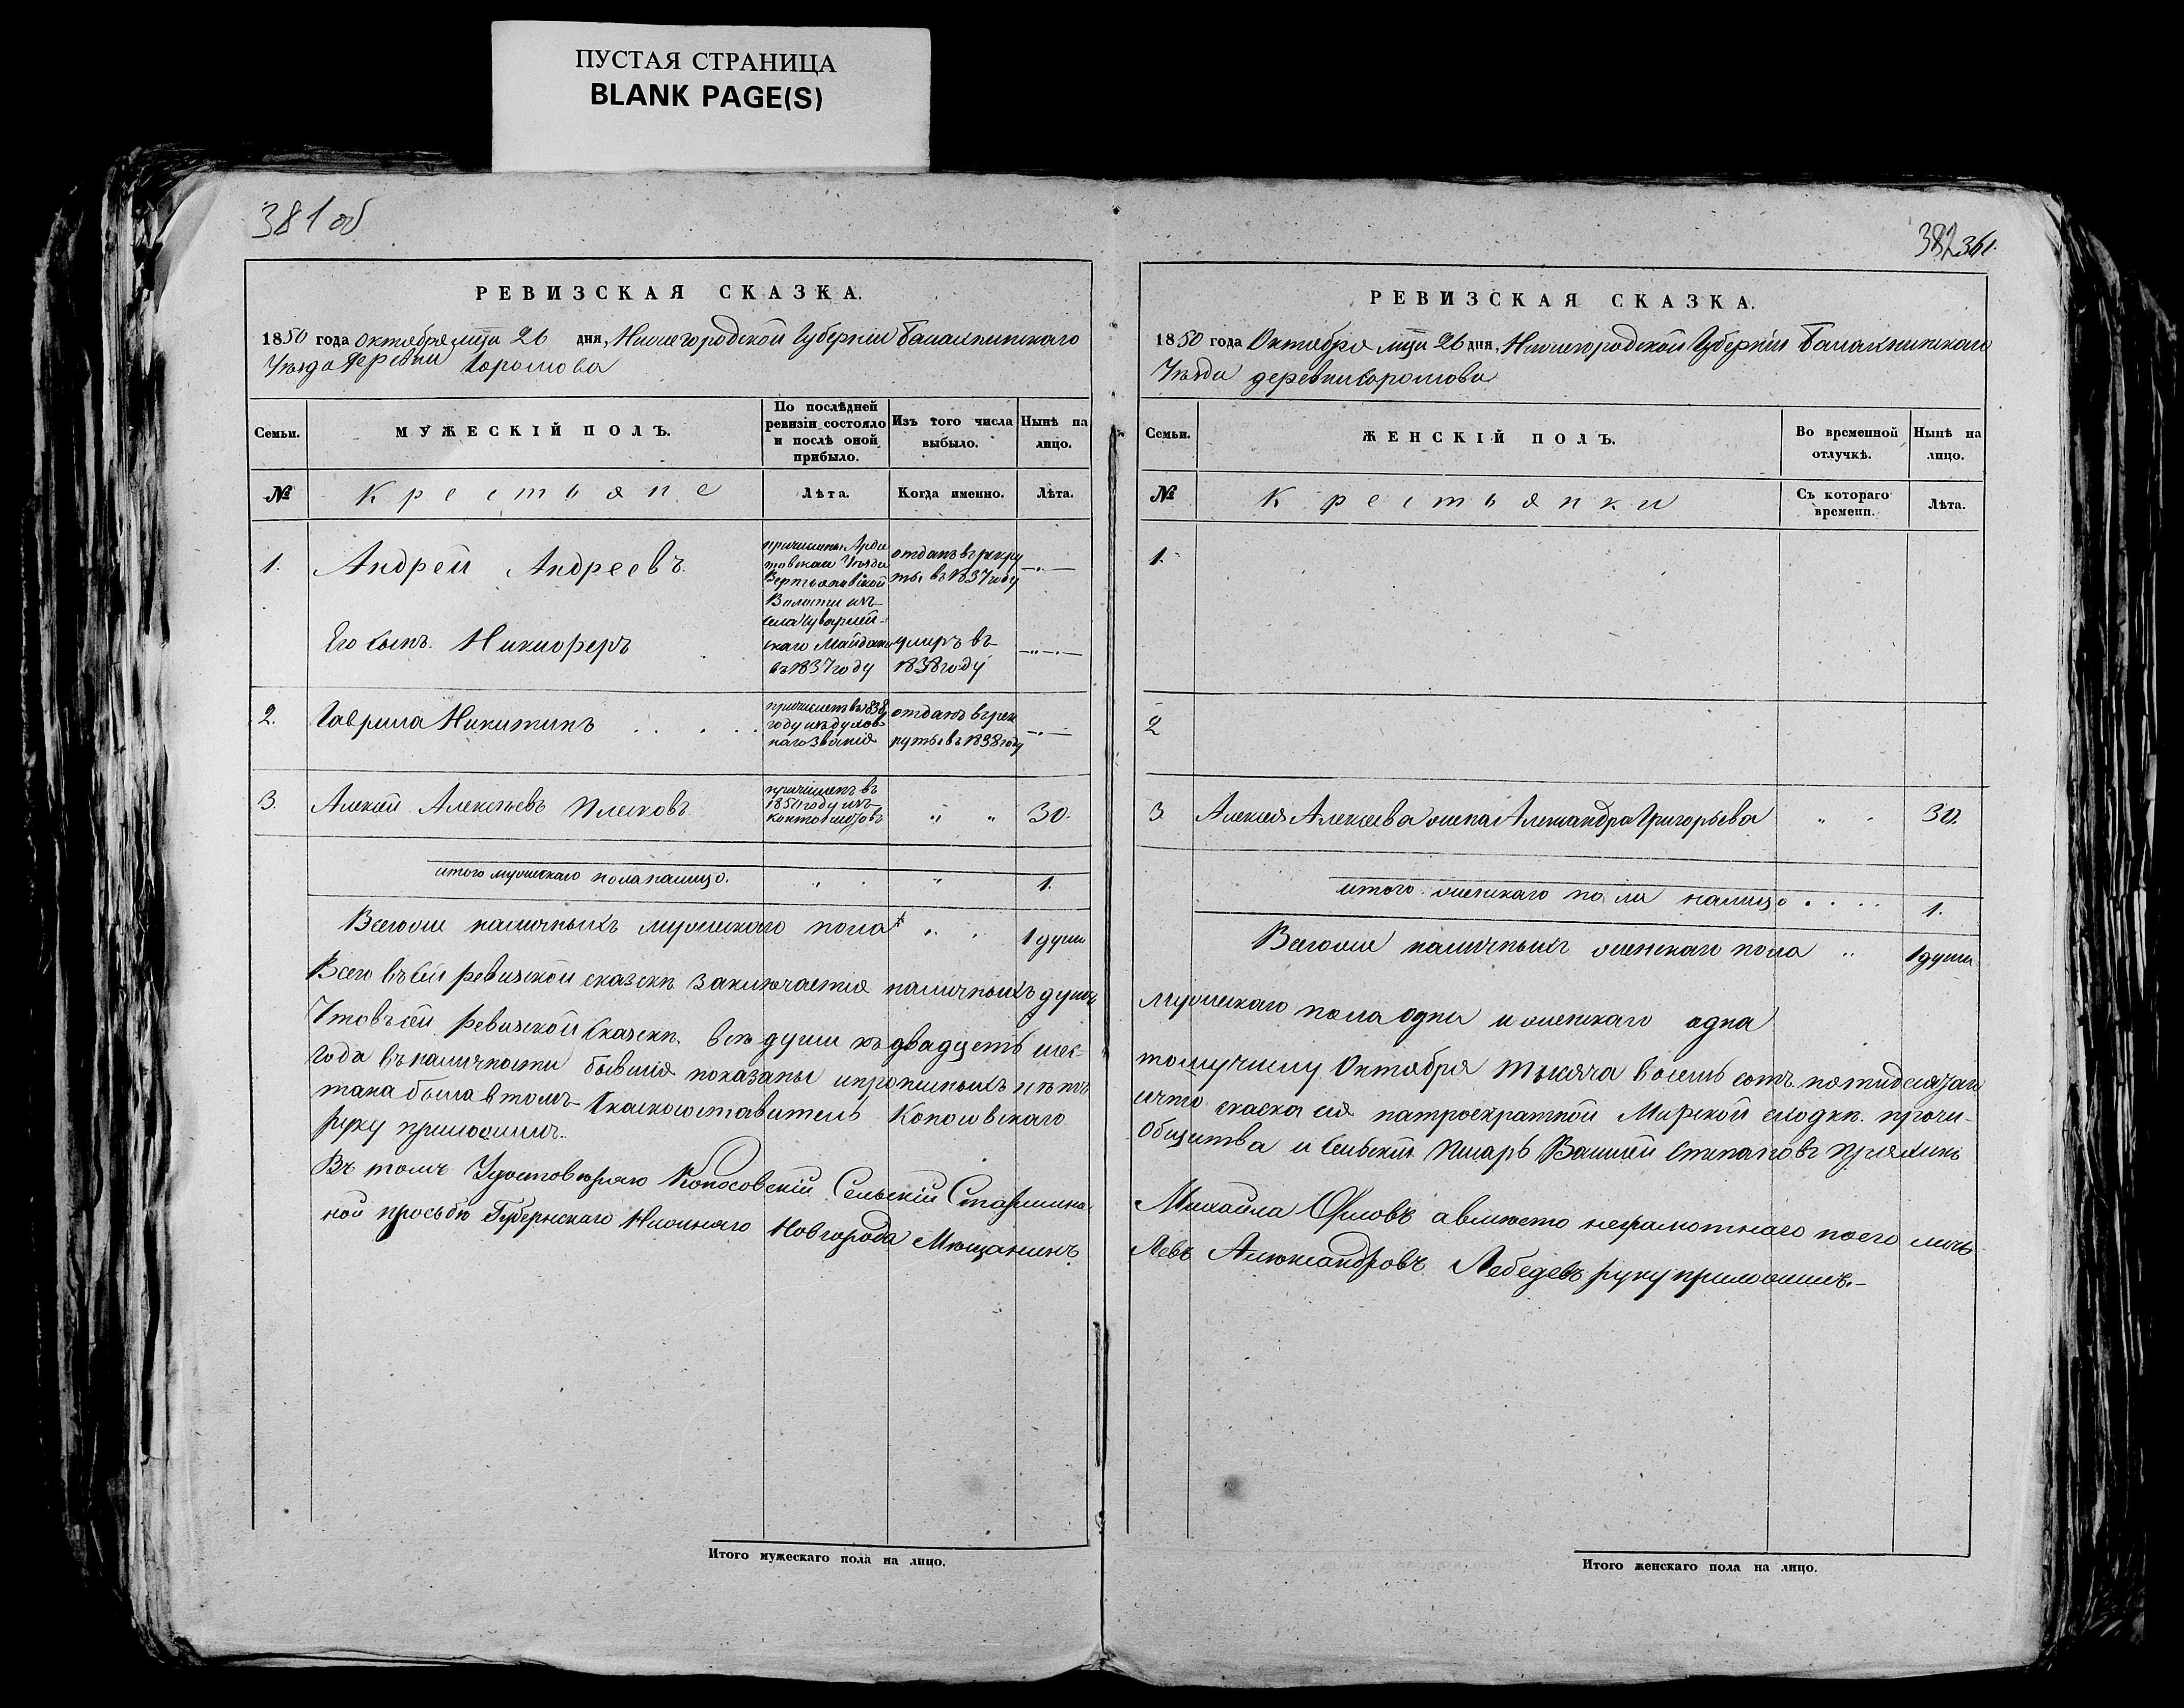 ПУСТАЯ СТРАНИЦА
BLANK PAGE(S)
381 об
РЕВИЗСКАЯ СКАЗКА.
1850 года октября мца 26 дня, Нижегородской Губернiи Балахнинскаго
Уезда деревни Сормова
Семьи.
МУЖЕСКІЙ ПОЛЪ.
По послѣдней ревизіи состояло и послѣ оной прибыло.
Изъ того числа выбыло.
Нынѣ на лицо.
№
Крестьяне
Лѣта.
Когда именно.
Лѣта.
1.
Андрей Андреевъ.
причисленъ Арда
товскаго Уѣзда
Вертьяновской
Волости изъ
села
скаго Майдана
въ 1837 году
отданъ в рекру
ты въ 1837 году
Его сынъ Никифоръ
умиръ въ
1838 году
2.
Гаврила Никитинъ
причисленъ в 1838
году изъ духов
наго званія
отданъ в рек
руты въ 1838 году
3.
Алексей Алексѣевъ Плеховъ
причисленъ въ
1850 году изъ
кантонистовъ
" "
30.
итого мужескаго пола налицо.
1.
Всегоже наличныхъ мужескаго пола
1 душа
Всего въ сей ревизской сказкѣ заключается наличныхъ душъ
Что въ сей ревизской сказкѣ все души къ двадцеть шес-
года въ наличности бывшія показаны и прописныхъ нѣтъ
тана была в томъ Сказкосоставитель Копосовскаго
руку приложилъ.
Въ томъ Удостовѣряю Копосовскій Сельскій Старшина
ной прозьбѣ Губернскаго Нижняго Новгорода Мѣщанинъ
Итого мужескаго пола на лицо.
382 361.
РЕВИЗСКАЯ СКАЗКА.
1850 года Октября мца 26 дня, Нижегородской Губерніи Балахнинскаго
Уезда деревни Сормова
Семьи.
ЖЕНСКІЙ ПОЛЪ.
Во временной отлучкѣ.
Нынѣ на лицо.
№
Крестьянки
Съ котораго времени.
Лѣта.
1.
2
3
Алексея Алексеева жена Александра Григорьева
30.
итого женскаго пола налицо
1.
Всегоже наличныхъ женскаго пола
1 душа
мужескаго пола одна и женскаго одна
тому числу Октября тысяча восемь сотъ пятидесятаго
и что сказка сія на троекратной Мирской сходкѣ прочи-
Общества и Сельскій писарь Василій Степановъ
Михайла Орловъ а вместо неграмотнаго по его лич
Левъ Александровъ Лебедевъ руку приложилъ.
Итого женскаго пола на лицо.